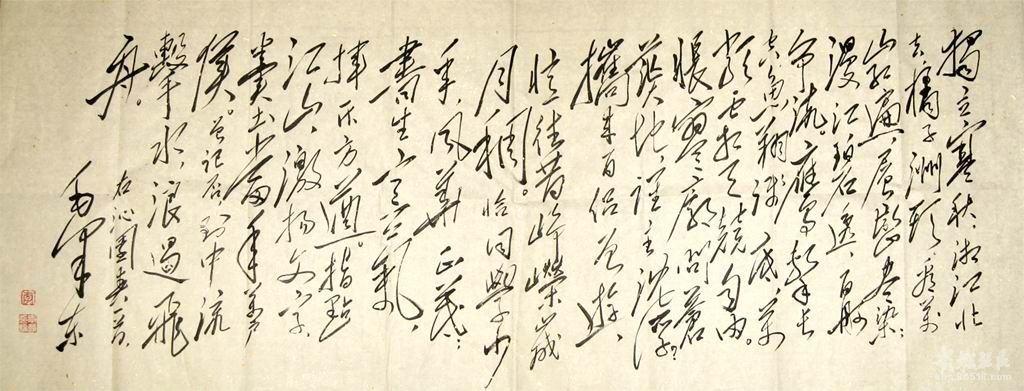 独立寒秋湘江北
去橘子洲头看万
山红遍层林尽染
漫江碧透百舸
争流。鹰击长
空鱼翔浅底万
类霜天竞自由。
怅寥廓问苍
茫大地谁主沉浮
携来百侣曾游、
忆往昔峥嵘岁
月稠。恰同学少
年、风华正茂:
书生意气、
挥斥方遒。指点
江山、激扬文字、
粪土当年万户
侯。曾记否到中流
击水、浪遏飞
舟。
右沁园春一首
毛泽东